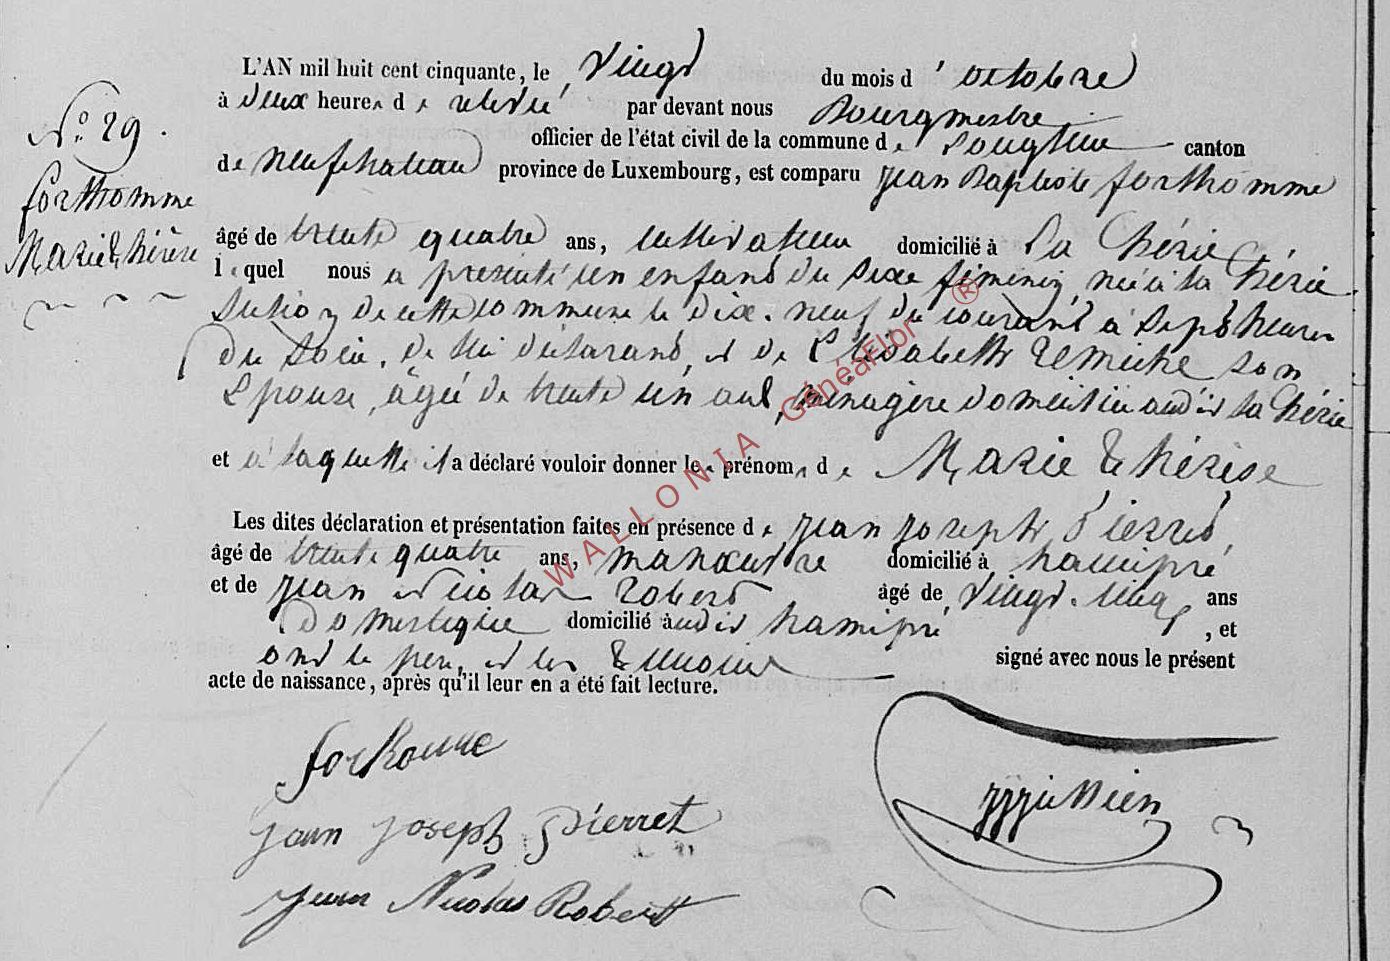 N° 29.
forthomme
Marie thérèse
L'AN mil huit cent cinquante, le vingt du mois d'octobre
à deux heures de relevé par devant nous Bourgmestre
officier de l'état civil de la commune de Longlier canton
de neufchateau province de Luxembourg, est comparu jean Baptiste forthomme
âgé de trente quatre ans, cultivateur domicilié à La Chérie
lequel nous a présenté un enfant du sexe féminin, née à la Chérie
section de cette commune le dix-neuf du courant à sept heures
du soir, de lui déclarant, et de Elisabeth Remiche son
Epouse, âgée de trente un ans, ménagère domiciliée audit la Chérie
et à laquelle il a déclaré vouloir donner les prénoms de Marie thérèse
Les dites déclaration et présentation faites en présence de jean joseph Pierret,
âgé de trente quatre ans, manoeuvre domicilié à hamipré
et de jean nicolas Robert âgé de vingt-cinq ans
Domestique domicilié audit hamipré, et
ont le père, et les témoins signé avec nous le présent
acte de naissance, après qu'il leur en a été fait lecture.
forthomme
jean joseph pierret
jean Nicolas Robert
WALLONIA GénéaFlor ®